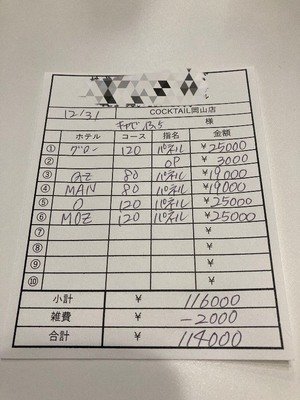 COCKTAIL岡山店
12/31
様
ホテル コース 指名 金額
① グロー 120 パネル ¥25000
② OP ¥3000
③ 80 パネル ¥19000
④ MAN 80 パネル ¥19000
⑤ O 120 パネル ¥25000
⑥ MOZ 120 パネル ¥25000
⑦ ¥
⑧ ¥
⑨ ¥
⑩ ¥
小計 ¥ 116000
雑費 ¥ -2000
合計 ¥ 114000